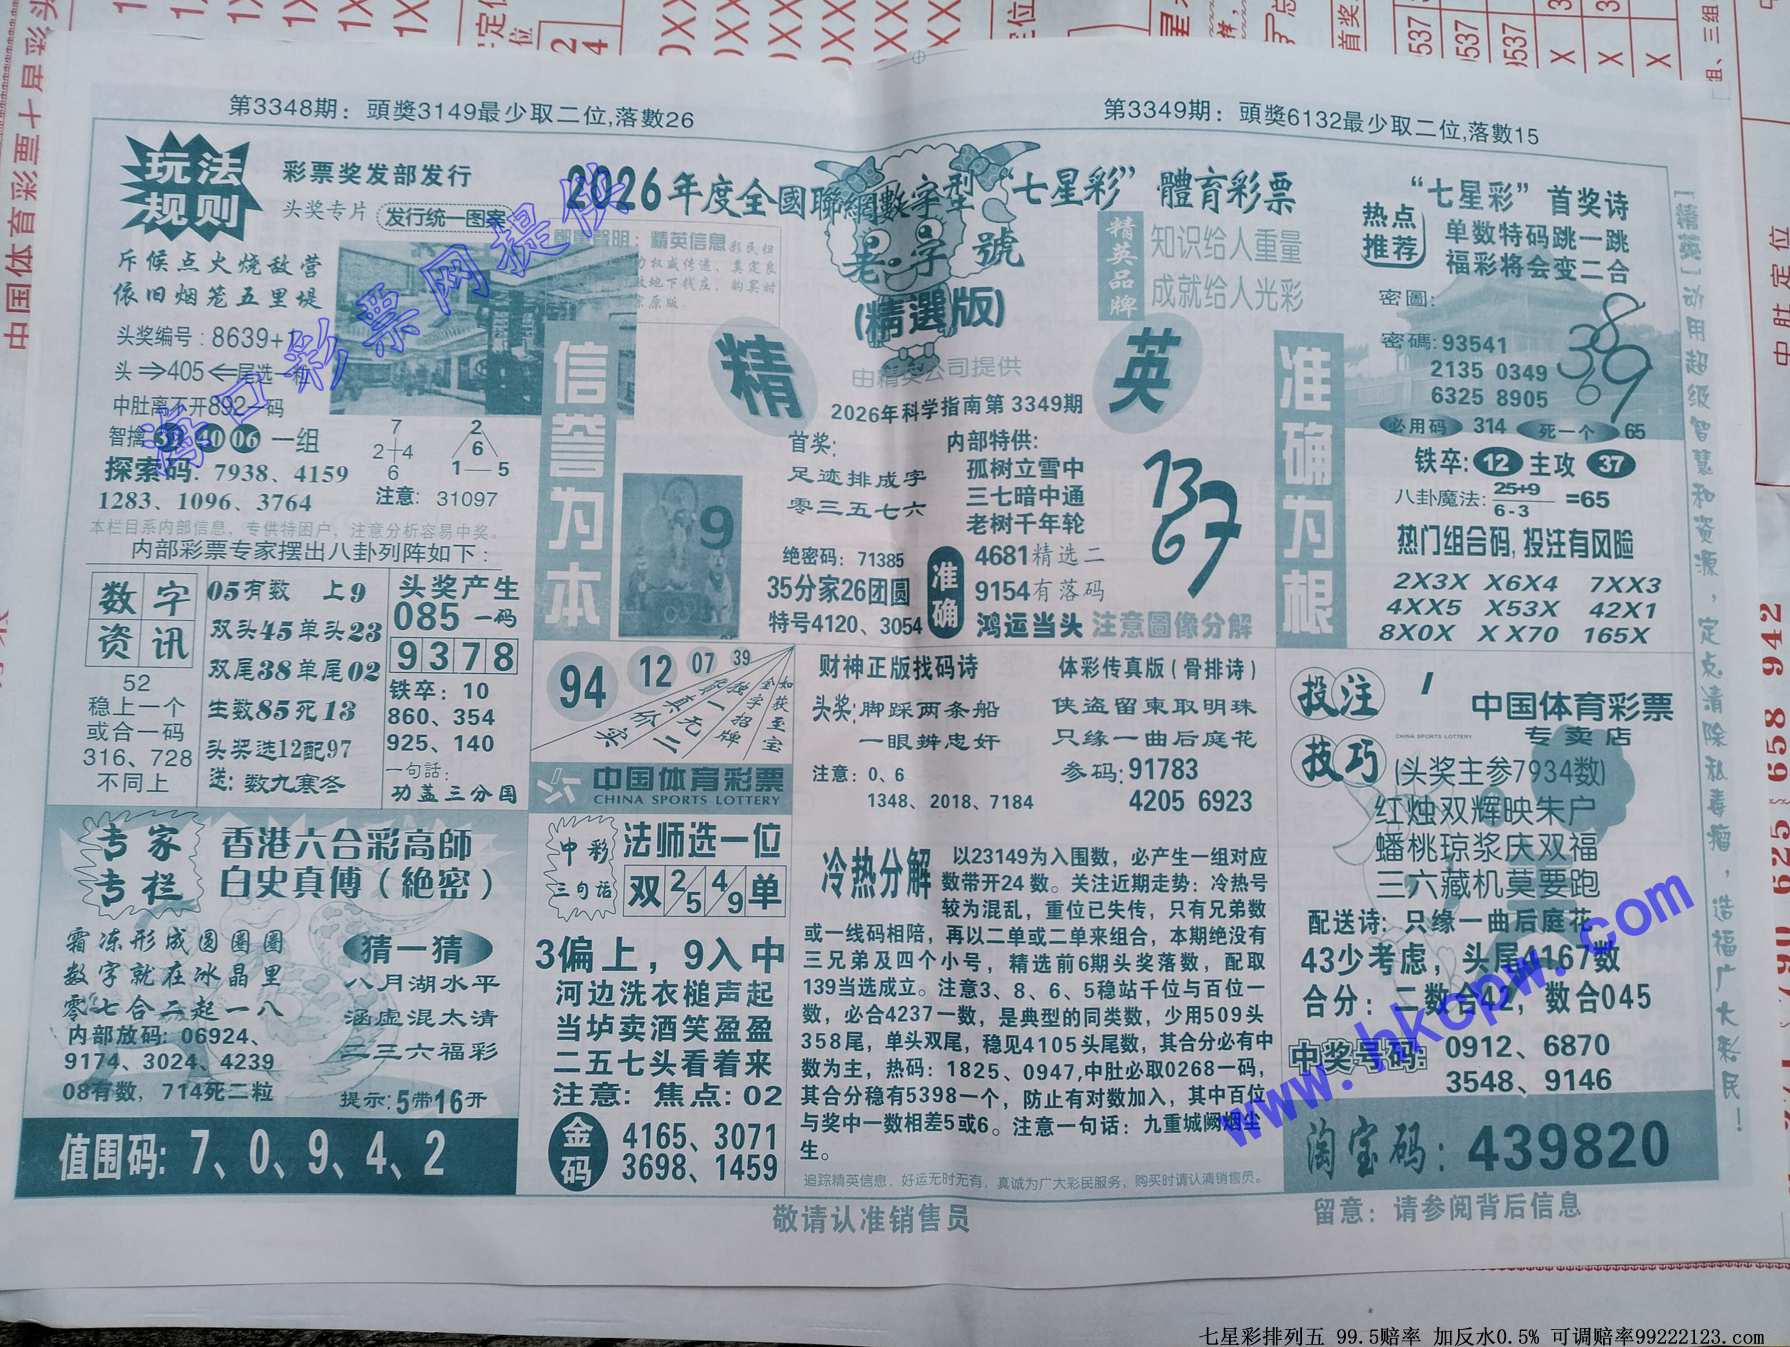 第3348期：頭獎3149最少取二位,落數26
第3349期：頭獎6132最少取二位,落數15
玩法
规则
彩票奖发部发行
头奖专片 发行统一图案
2026年度全國聯網數字型“七星彩”體育彩票
老字號
(精選版)
由精英公司提供
2026年科学指南第 3349期
精
英
精英品牌
知识给人重量
成就给人光彩
“七星彩”首奖诗
热点
推荐
单数特码跳一跳
福彩将会变二合
密圖:
密碼: 93541
2135 0349
6325 8905
必用码 314 死一个 65
铁卒: 12 主攻 37
八卦魔法: 25+9
6-3
=65
热门组合码,投注有风险
2X3X X6X4 7XX3
4XX5 X53X 42X1
8X0X XX70 165X
斥候点火烧敌营
依旧烟笼五里堤
头奖编号: 8639+
头⇒405⇐尾选一
中肚离不开892一码
智擒 40 06 一组
探索码: 7938、4159
1283、1096、3764
7
2+4
6
2
6
1 5
注意: 31097
本栏目系内部信息，专供特困户，注意分析容易中奖。
内部彩票专家摆出八卦列阵如下:
数字
资讯
52
稳上一个
或合一码
316、728
不同上
05有数 上9
双头45单头23
双尾38单尾02
生数85死13
头奖选12配97
送: 数九寒冬
头奖产生
085 一码
9378
铁卒: 10
860、354
925、140
一句話:
功盖三分国
信誉为本
准确为根
9
首奖:
足迹排成字
零三五七六
绝密码: 71385
35分家26团圆
特号4120、3054
内部特供:
孤树立雪中
三七暗中通
老树千年轮
准确
4681精选二
9154有落码
鸿运当头 注意圖像分解
94 12 07 39
中国体育彩票
CHINA SPORTS LOTTERY
财神正版找码诗
头奖: 脚踩两条船
一眼辨忠奸
注意: 0、6
1348、2018、7184
体彩传真版(骨排诗)
侠盗留柬取明珠
只缘一曲后庭花
参码: 91783
4205 6923
投注
技巧
中国体育彩票
CHINA SPORTS LOTTERY
专卖店
(头奖主参7934数)
红烛双辉映朱户
蟠桃琼浆庆双福
三六藏机莫要跑
配送诗: 只缘一曲后庭花
43少考虑，头尾4167数
合分: 二数合42，数合045
中奖号码: 0912、6870
3548、9146
淘宝码: 439820
专家
专栏
香港六合彩高師
白史真傅(絶密)
霜冻形成圆圈圈
数字就在冰晶里
零七合二起一八
内部放码: 06924、
9174、3024、4239
08有数，714死二粒
猜一猜
八月湖水平
涵虚混太清
二三六福彩
提示: 5带16开
值围码: 7、0、9、4、2
中彩
三句话
法师选一位
双 2/5 4/9 单
3偏上，9入中
河边洗衣槌声起
当垆卖酒笑盈盈
二五七头看着来
注意: 焦点: 02
金码
4165、3071
3698、1459
冷热分解
以23149为入围数，必产生一组对应
数带开24数。关注近期走势：冷热号
较为混乱，重位已失传，只有兄弟数
或一线码相陪，再以二单或二单来组合，本期绝没有
三兄弟及四个小号，精选前6期头奖落数，配取
139当选成立。注意3、8、6、5稳站千位与百位一
数，必合4237一数，是典型的同类数，少用509头
358尾，单头双尾，稳见4105头尾数，其合分必有中
数为主，热码：1825、0947,中肚必取0268一码，
其合分稳有5398一个，防止有对数加入，其中百位
与奖中一数相差5或6。注意一句话：九重城阙烟尘
生。
追踪精英信息，好运无时无有，真诚为广大彩民服务，购买时请认清销售员。
敬请认准销售员
留意：请参阅背后信息
[精英]动用超级智慧和资源，定点清除私毒瘤，造福广大彩民！
海口彩票网提供
www.hkcpw.com
七星彩排列五 99.5赔率 加反水0.5% 可调赔率99222123.com